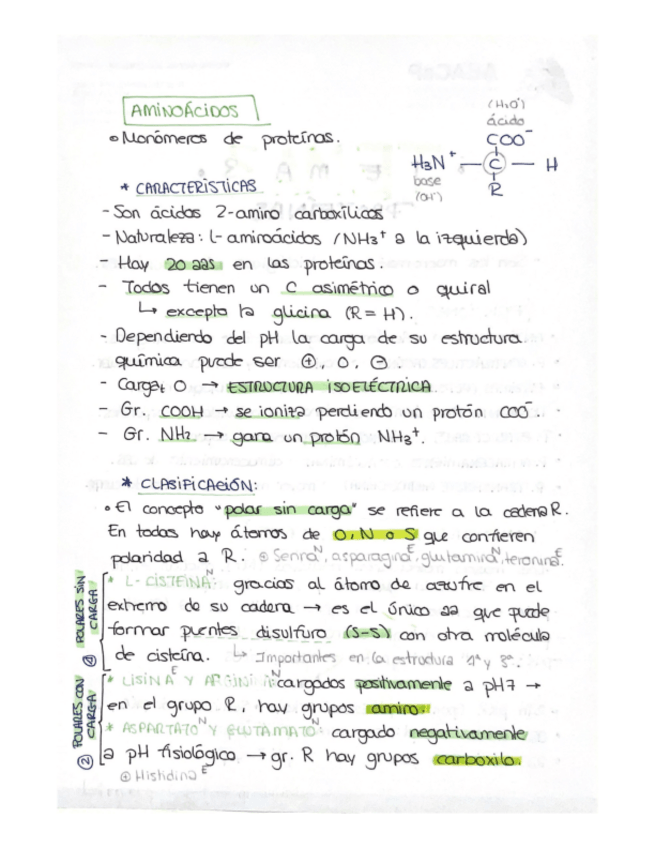 AMINOÁCIDOS
• Monómeros de proteínas.
(H₃O⁺)
ácido
COO⁻
H₃N⁺ — C — H
base
(OH⁻)
R
* CARACTERÍSTICAS
- Son ácidos 2-amino carboxílicos
- Naturaleza: L-aminoácidos (NH₃⁺ a la izquierda)
- Hay 20 aas en las proteínas.
- Todos tienen un C asimétrico o quiral
↳ excepto la glicina (R = H).
- Dependiendo del pH la carga de su estructura
química puede ser ⊕, 0, ⊖.
- Carga 0 → ESTRUCTURA ISOELÉCTRICA
- Gr. COOH → se ioniza perdiendo un protón COO⁻.
- Gr. NH₂ → gana un protón NH₃⁺.
* CLASIFICACIÓN:
• El concepto "polar sin carga" se refiere a la cadena R.
En todas hay átomos de O, N o S que confieren
polaridad a R. ⊕ Serina ᴺ, asparagina ᴱ, glutamina ᴺ, treonina ᴱ.
① POLARES SIN CARGA
* L-CISTEÍNA ᴺ: gracias al átomo de azufre en el
extremo de su cadena → es el único aa que puede
formar puentes disulfuro (S-S) con otra molécula
de cisteína. ↳ Importantes en la estructura 1ª y 3ª.
② POLARES CON CARGA
* LISINA ᴱ Y ARGININA ᴺ: cargados positivamente a pH7 →
en el grupo R, hay grupos amino.
* ASPARTATO ᴺ Y GLUTAMATO ᴺ: cargado negativamente
a pH fisiológico → gr. R hay grupos carboxilo.
⊕ Histidina ᴱ